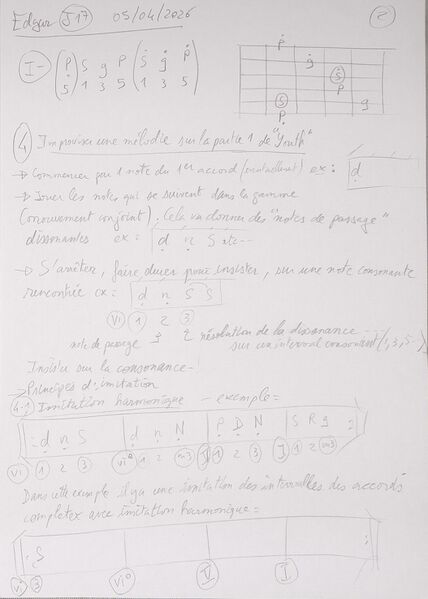 Edgar J17 05/04/2026 2
I- (P S g P (S g P
5) 1 3 5 1 3 5)
P
g
S
P
S g
P
4 Improviser une mélodie sur la partie 1 de "Youth"
→ Commencer par 1 note du 1er accord (éventuellement) ex : d
→ Jouer les notes qui se suivent dans la gamme
(mouvement conjoint). Cela va donner des "notes de passage"
dissonantes ex : d n S etc...
→ S'arrêter, faire durer pour insister, sur une note consonante
rencontrée ex : d n S S
VI 1 2 3
note de passage résolution de la dissonance
sur un intervalle consonant (1, 3, 5..)
Insister sur la consonance.
→ Principes d'imitation
4-1 Imitation harmonique - exemple =
d n S d n N P D N S R g
VI 1 2 3 VI° 1 2 m3 V 1 2 3 I 1 2 m3
Dans cette exemple il y a une imitation des intervalles des accords
completer avec imitation harmonique =
S
VI 3 VI° V I